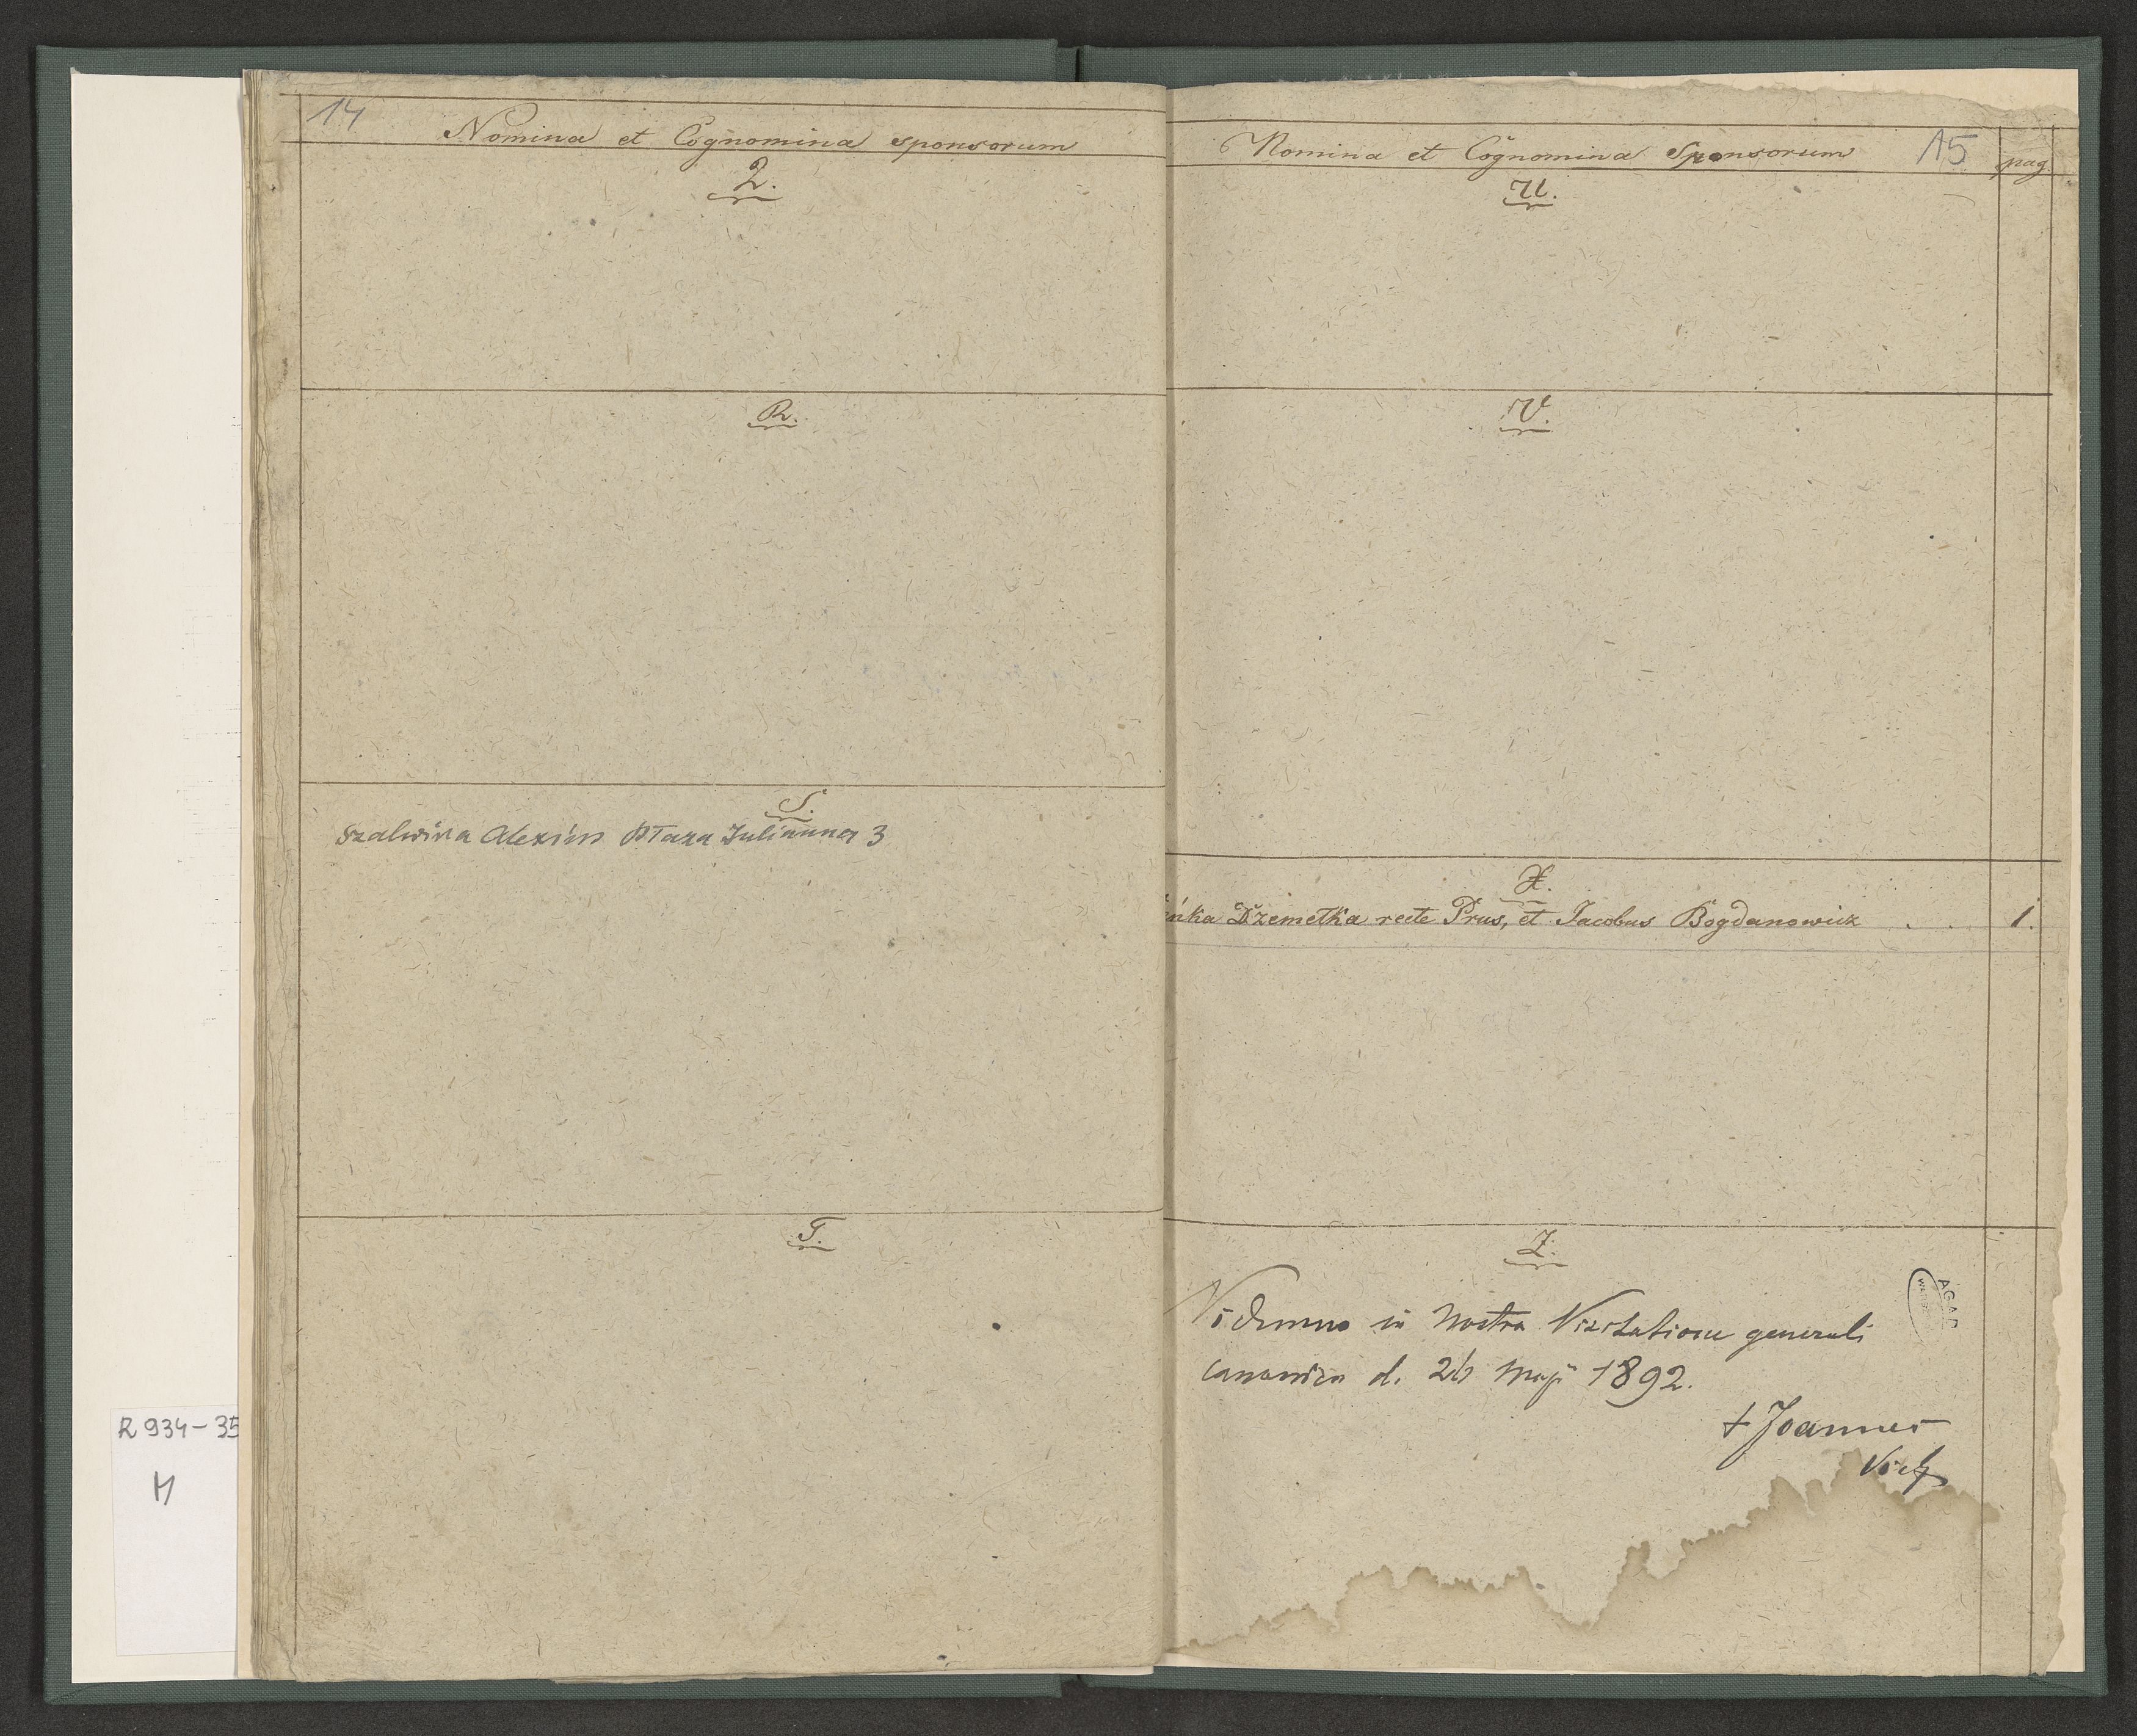 14
Nomina et Cognomina sponsorum
Q.
R.
S.
Szalwira Alexius Ptaza Julianna 3
T.
R 934-35
M
Nomina et Cognomina Sponsorum 15 pag.
U.
V.
X.
Dzemetka recte Prus, et Jacobus Bogdanowicz . . 1.
Z.
Vidimus in nostra Visitatione generali
canonica d. 26 Maji 1892.
+ Joannes
AGAD